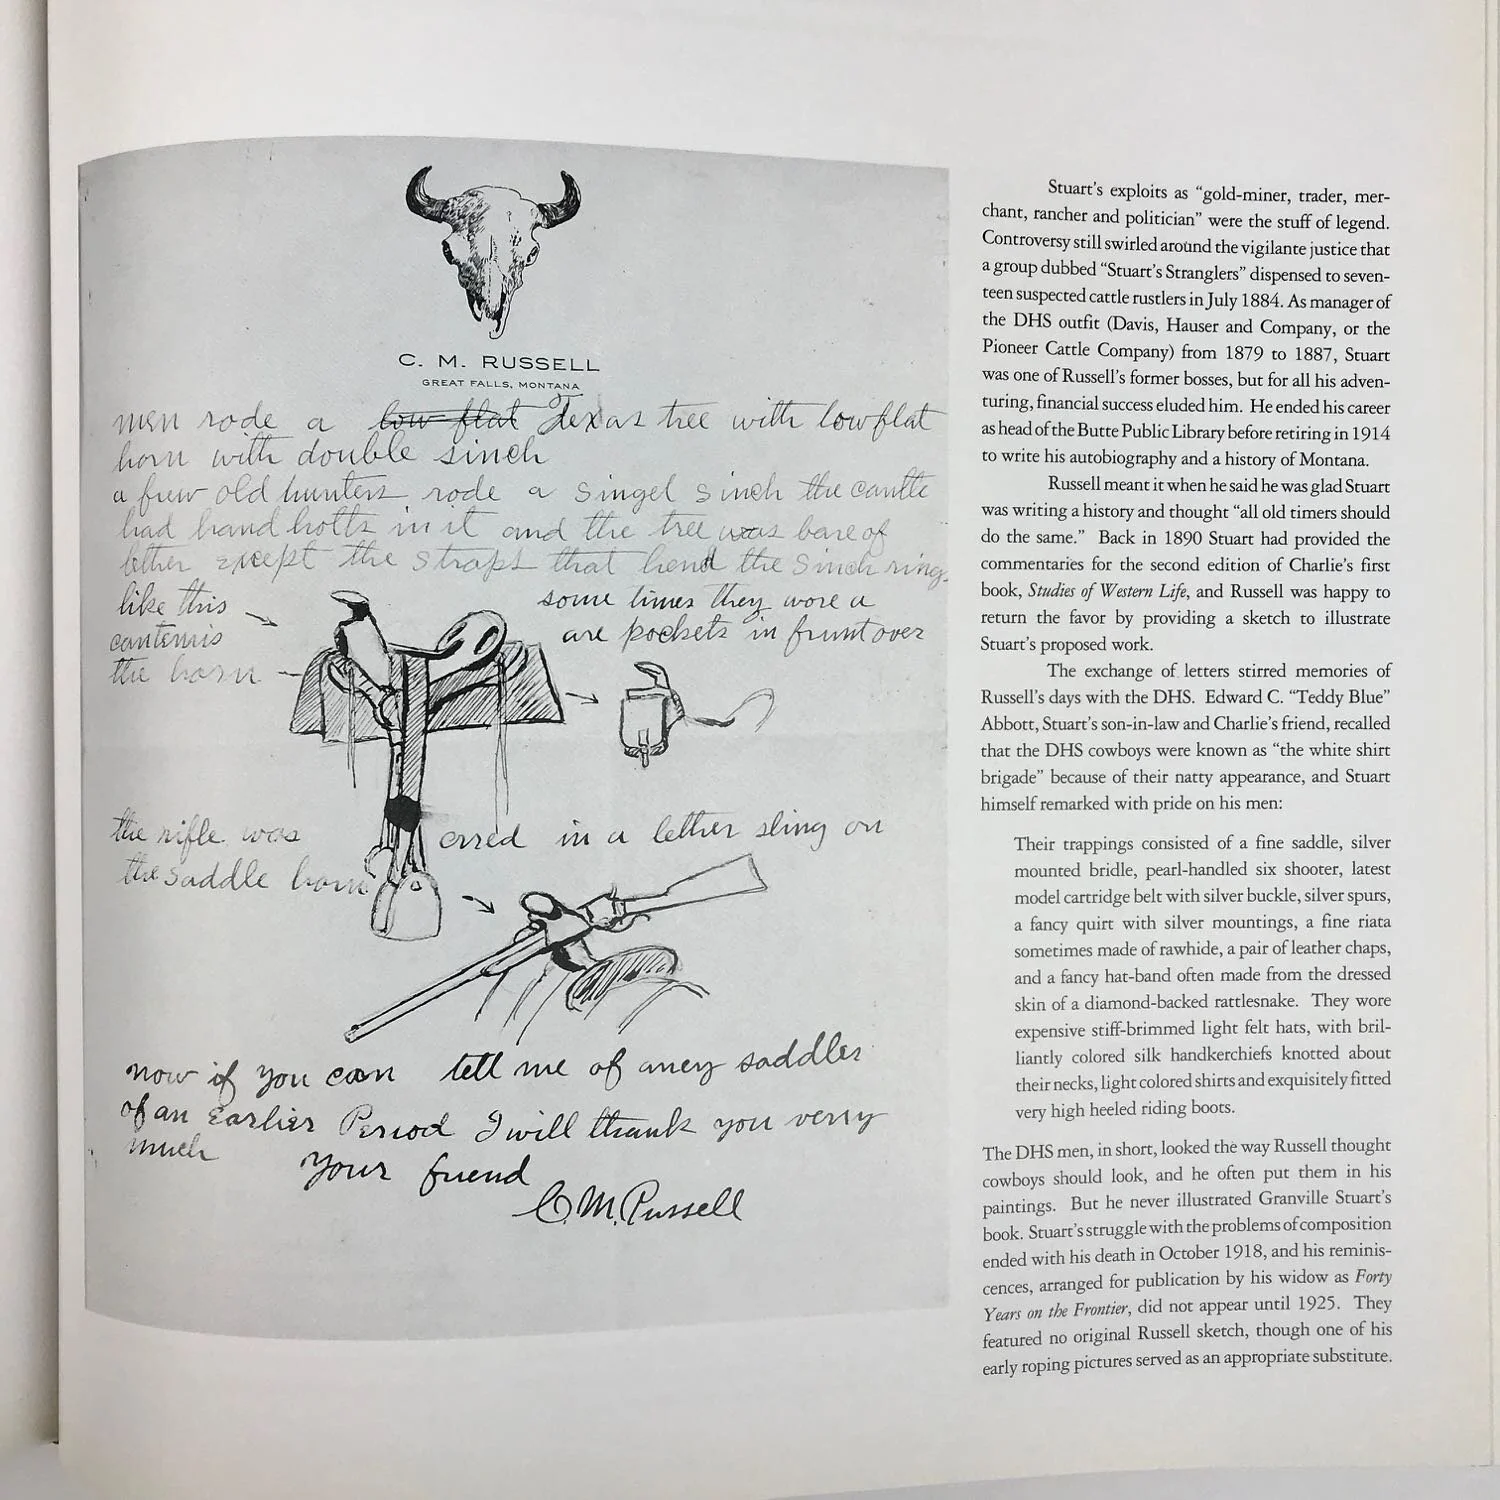 C. M. RUSSELL
GREAT FALLS, MONTANA
men rode a low flat Texas tree with low flat
horn with double sinch
a fiew old hunters rode a singel sinch the cantle
had hand holts in it and the tree was bare of
lether except the straps that hend the sinch ring
like this
some times they wore a
cantenis
are pockets in frunt over
the horn
the rifle was
cared in a lether sling on
the saddle horn
now if you can tell me of aney saddles
of an earlier Period I will thank you verry
much
Your friend
C. M. Russell
Stuart's exploits as “gold-miner, trader, mer-
chant, rancher and politician” were the stuff of legend.
Controversy still swirled around the vigilante justice that
a group dubbed “Stuart's Stranglers” dispensed to seven-
teen suspected cattle rustlers in July 1884. As manager of
the DHS outfit (Davis, Hauser and Company, or the
Pioneer Cattle Company) from 1879 to 1887, Stuart
was one of Russell's former bosses, but for all his adven-
turing, financial success eluded him. He ended his career
as head of the Butte Public Library before retiring in 1914
to write his autobiography and a history of Montana.
Russell meant it when he said he was glad Stuart
was writing a history and thought “all old timers should
do the same.” Back in 1890 Stuart had provided the
commentaries for the second edition of Charlie's first
book, Studies of Western Life, and Russell was happy to
return the favor by providing a sketch to illustrate
Stuart's proposed work.
The exchange of letters stirred memories of
Russell's days with the DHS. Edward C. “Teddy Blue”
Abbott, Stuart's son-in-law and Charlie's friend, recalled
that the DHS cowboys were known as “the white shirt
brigade” because of their natty appearance, and Stuart
himself remarked with pride on his men:
Their trappings consisted of a fine saddle, silver
mounted bridle, pearl-handled six shooter, latest
model cartridge belt with silver buckle, silver spurs,
a fancy quirt with silver mountings, a fine riata
sometimes made of rawhide, a pair of leather chaps,
and a fancy hat-band often made from the dressed
skin of a diamond-backed rattlesnake. They wore
expensive stiff-brimmed light felt hats, with bril-
liantly colored silk handkerchiefs knotted about
their necks, light colored shirts and exquisitely fitted
very high heeled riding boots.
The DHS men, in short, looked the way Russell thought
cowboys should look, and he often put them in his
paintings. But he never illustrated Granville Stuart's
book. Stuart's struggle with the problems of composition
ended with his death in October 1918, and his reminis-
cences, arranged for publication by his widow as Forty
Years on the Frontier, did not appear until 1925. They
featured no original Russell sketch, though one of his
early roping pictures served as an appropriate substitute.